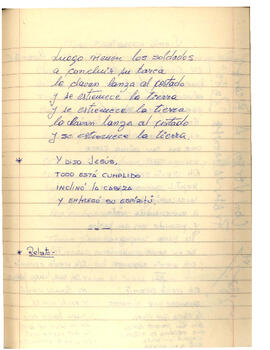 Luego vienen los soldados
a concluir su tarea
le clavan lanza al costado
y se estremece la tierra
y se estremece la tierra
le clavan lanza al costado
y se estremece la tierra.
* Y DIJO JESÚS,
TODO ESTÁ CUMPLIDO
INCLINÓ LA CABEZA
Y ENTREGÓ SU ESPÍRITU.
* Relato.-